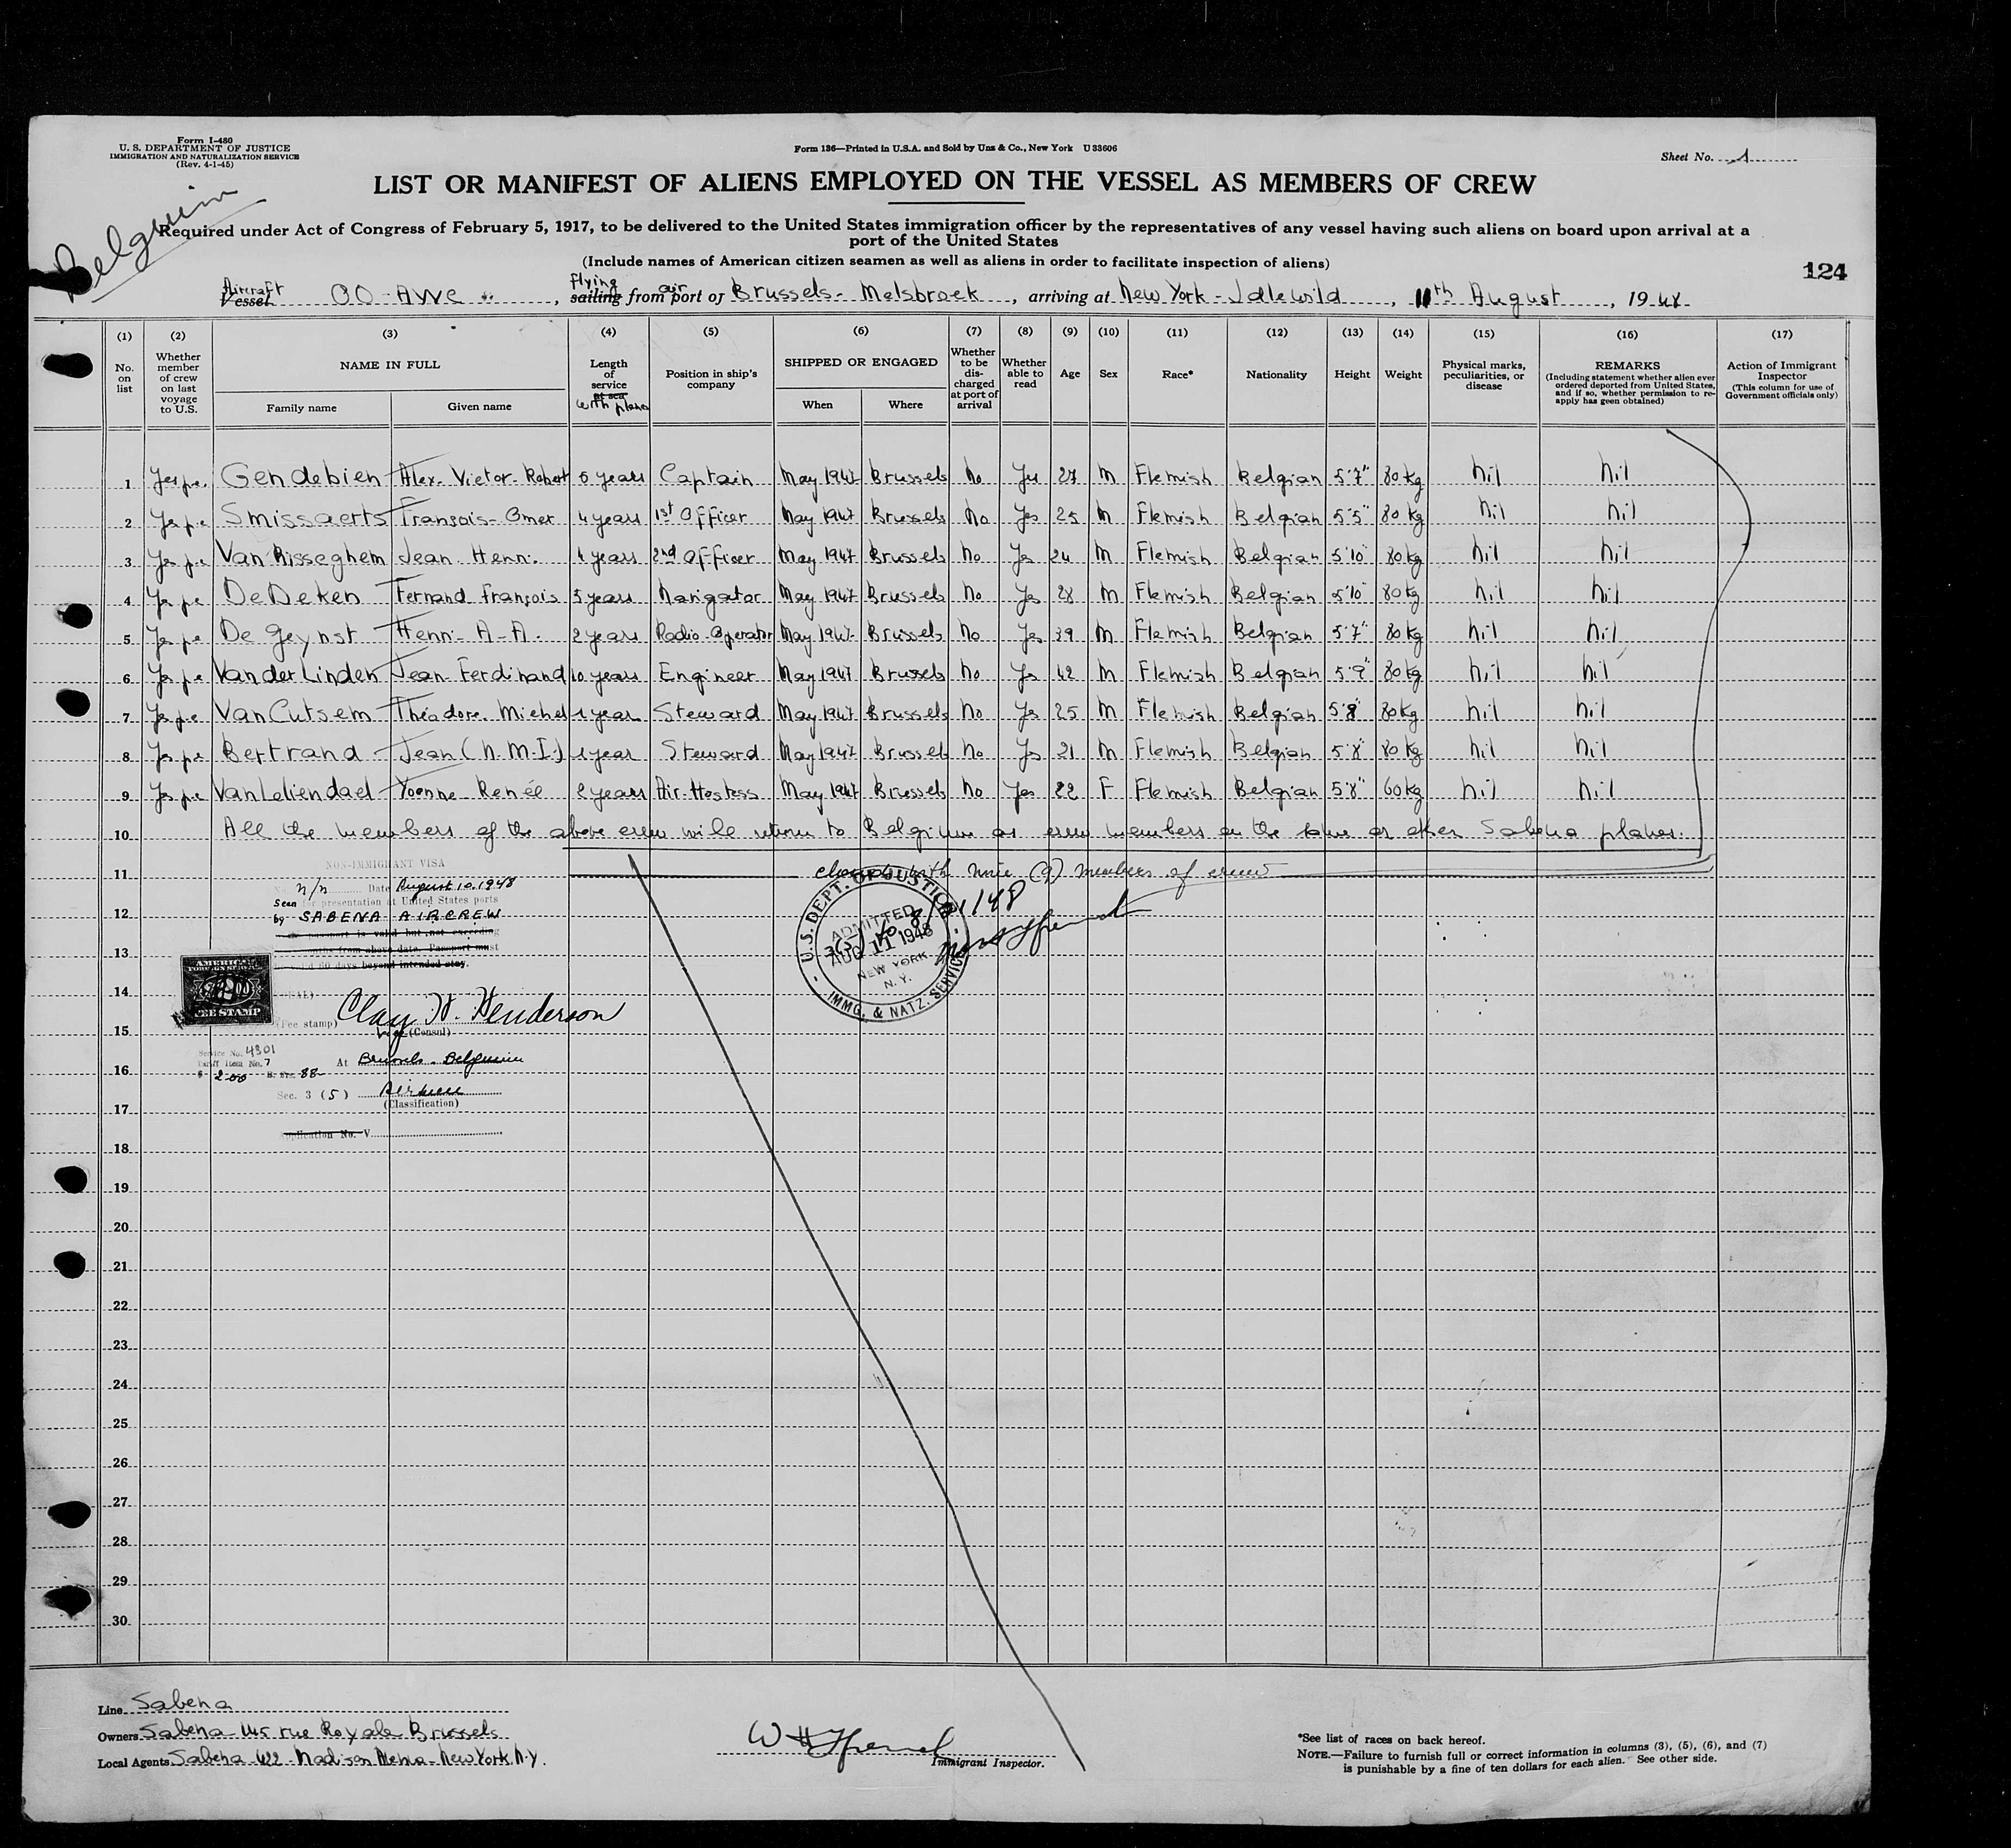 Form I-480
U. S. DEPARTMENT OF JUSTICE
IMMIGRATION AND NATURALIZATION SERVICE
(Rev. 4-1-45)
Form 136—Printed in U.S.A. and Sold by Unz & Co., New York U 33606
Sheet No. 1
Belgium
LIST OR MANIFEST OF ALIENS EMPLOYED ON THE VESSEL AS MEMBERS OF CREW
Required under Act of Congress of February 5, 1917, to be delivered to the United States immigration officer by the representatives of any vessel having such aliens on board upon arrival at a
port of the United States
(Include names of American citizen seamen as well as aliens in order to facilitate inspection of aliens)
124
Aircraft flying air
Vessel OO-AWC, sailing from port of Brussels-Melsbroek, arriving at New York-Idlewild, 11th August, 1948
(1) (2) (3) (4) (5) (6) (7) (8) (9) (10) (11) (12) (13) (14) (15) (16) (17)
No. on list
Whether member of crew on last voyage to U.S.
NAME IN FULL
Family name Given name
Length of service at sea with plane
Position in ship's company
SHIPPED OR ENGAGED
When Where
Whether to be discharged at port of arrival
Whether able to read
Age
Sex
Race*
Nationality
Height
Weight
Physical marks, peculiarities, or disease
REMARKS
(Including statement whether alien ever ordered deported from United States, and if so, whether permission to reapply has geen obtained)
Action of Immigrant Inspector
(This column for use of Government officials only)
1 Yes p.e. Gendebien Alex. Victor. Robert 5 years Captain May 1947 Brussels No Yes 27 M Flemish Belgian 5'7" 80 kg nil nil
2 Yes p.e Smissaerts François-Omer 4 years 1st Officer May 1947 Brussels No Yes 25 M Flemish Belgian 5'5" 80 kg nil nil
3 Yes p.e Van Risseghem Jean. Henri. 4 years 2nd Officer May 1947 Brussels No Yes 24 M Flemish Belgian 5'10" 80 kg nil nil
4 Yes p.e De Deken Fernand François 5 years Navigator May 1947 Brussels No Yes 28 M Flemish Belgian 5'10" 80 kg nil nil
5 Yes p.e De Geynst Henri-A-A. 2 years Radio-Operator May 1947 Brussels No Yes 39 M Flemish Belgian 5'7" 80 kg nil nil
6 Yes p.e Van der Linden Jean-Ferdinand 10 years Engineer May 1947 Brussels No Yes 42 M Flemish Belgian 5'9" 80 kg nil nil
7 Yes p.e Van Cutsem Théodore. Michel 1 year Steward May 1947 Brussels No Yes 25 M Flemish Belgian 5'8" 80 kg nil nil
8 Yes p.e Bertrand Jean (N.M.I.) 1 year Steward May 1947 Brussels No Yes 21 M Flemish Belgian 5'8" 80 kg nil nil
9 Yes p.e Van Leliendael Yvonne Renée 2 years Air-Hostess May 1947 Brussels No Yes 22 F Flemish Belgian 5'8" 60 kg nil nil
10 All the members of the above crew will return to Belgium as crew members on the same or other Sabena planes.
11 closed with nine (9) members of crew
NON-IMMIGRANT VISA
n/n Date August 10. 1948
Seen for presentation at United States ports
by SABENA AIRCREW
passport is valid but not exceeding
months from above date. Passport must
60 days beyond intended stay.
12
13
14
15
16
17
18
19
20
21
22
23
24
25
26
27
28
29
30
AMERICAN
FOREIGN SERVICE
FEE STAMP
(Fee stamp)
Clay W. Henderson
Vice (Consul)
Service No. 4301
Tariff Item No. 7
At Brussels-Belgium
$ 2.00 B. Frs. 88-
Sec. 3 (5) Aircrew
(Classification)
Application No. V
U. S. DEPT. OF JUSTICE
ADMITTED
3(5) to 8/ /48
AUG 11 1948
NEW YORK
N. Y.
IMMG. & NATZ. SERVICE
Line Sabena
Owners Sabena 145 rue Royale Brussels
Local Agents Sabena 422 Madison Avenue New York N.Y.
Immigrant Inspector.
*See list of races on back hereof.
NOTE.—Failure to furnish full or correct information in columns (3), (5), (6), and (7)
is punishable by a fine of ten dollars for each alien. See other side.